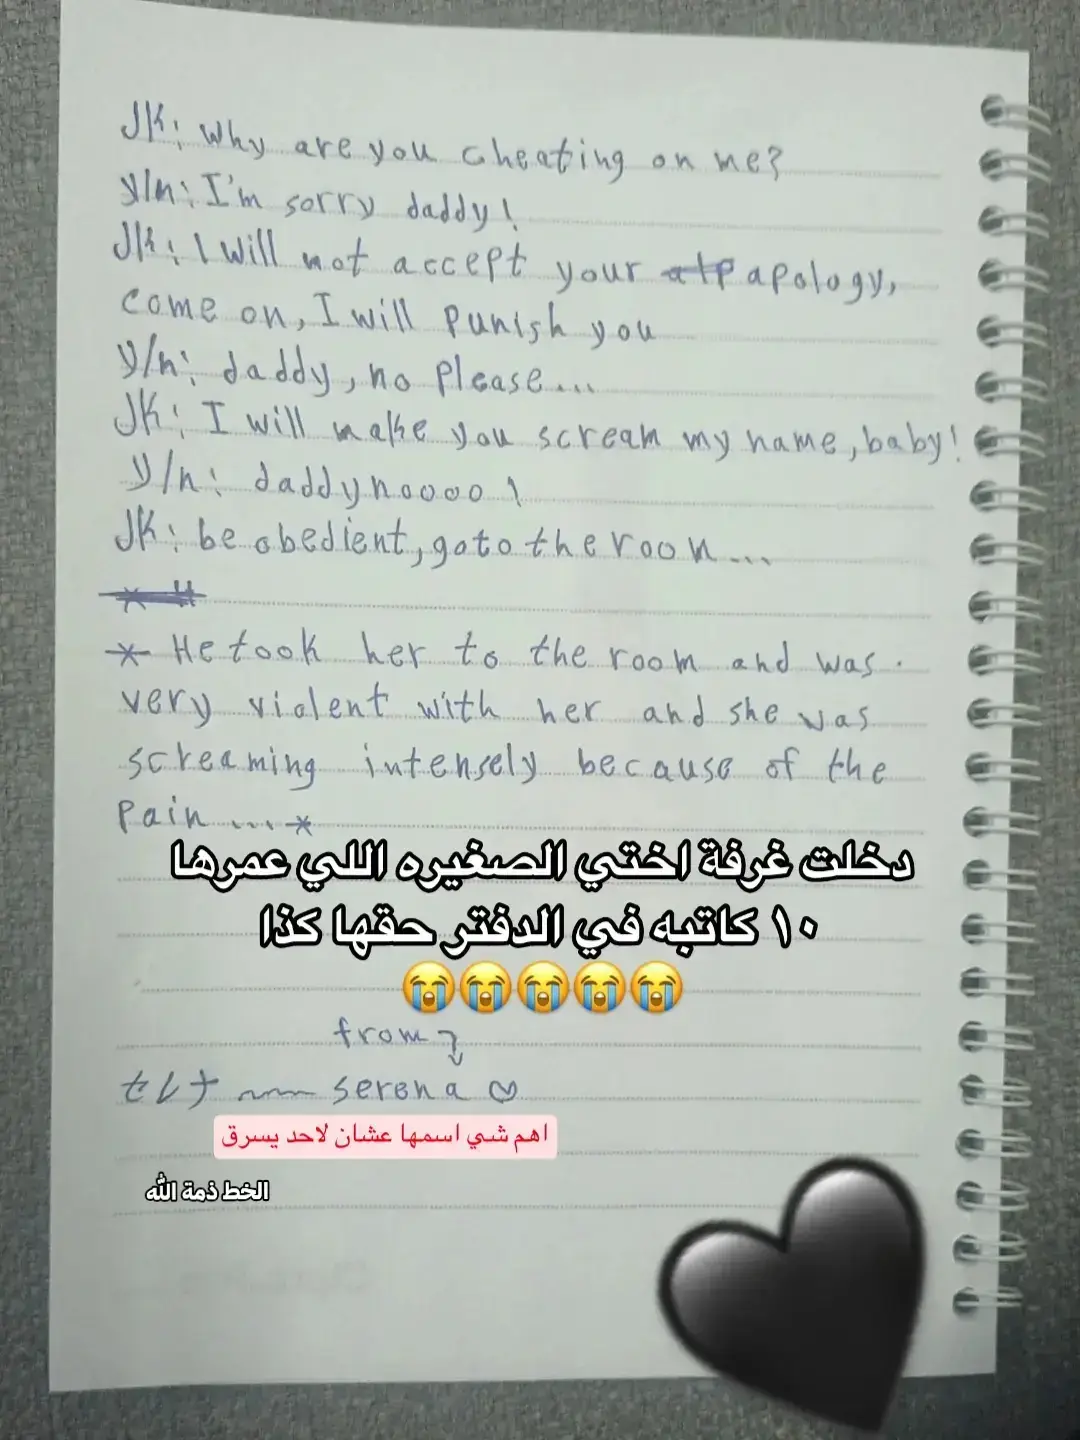 JK: Why are you cheating on me?
y/n: I'm sorry daddy!
JK: I will not accept your apology,
come on, I will punish you
y/n: daddy, no please...
JK: I will make you scream my name, baby!
y/n: daddy noooo!
JK: be obedient, go to the room...
* He took her to the room and was
very violent with her and she was
screaming intensely because of the
pain ... *
دخلت غرفة اختي الصغيره اللي عمرها
١٠ كاتبه في الدفتر حقها كذا
😭😭😭😭😭
from
セレナ serena ♡
اهم شي اسمها عشان لاحد يسرق
الخط ذمة الله